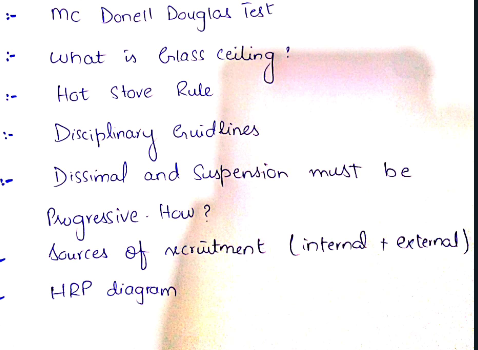 :- MC Donell Douglas Test
:- What is Glass ceiling?
:- Hot Stove Rule
:- Disciplinary Guidlines
:- Dissimal and Suspension must be
Progressive. How?
- Sources of recruitment (internal + external)
- HRP diagram